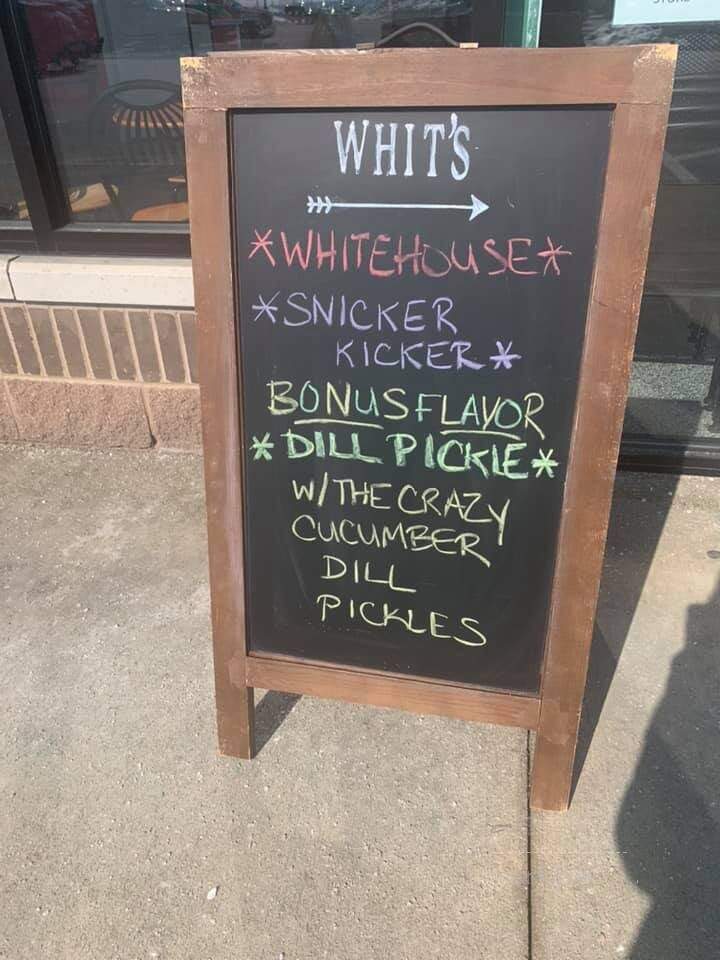 WHIT'S
*WHITEHOUSE*
*SNICKER
KICKER*
BONUS FLAVOR
*DILL PICKLE*
W/ THE CRAZY
CUCUMBER
DILL
PICKLES